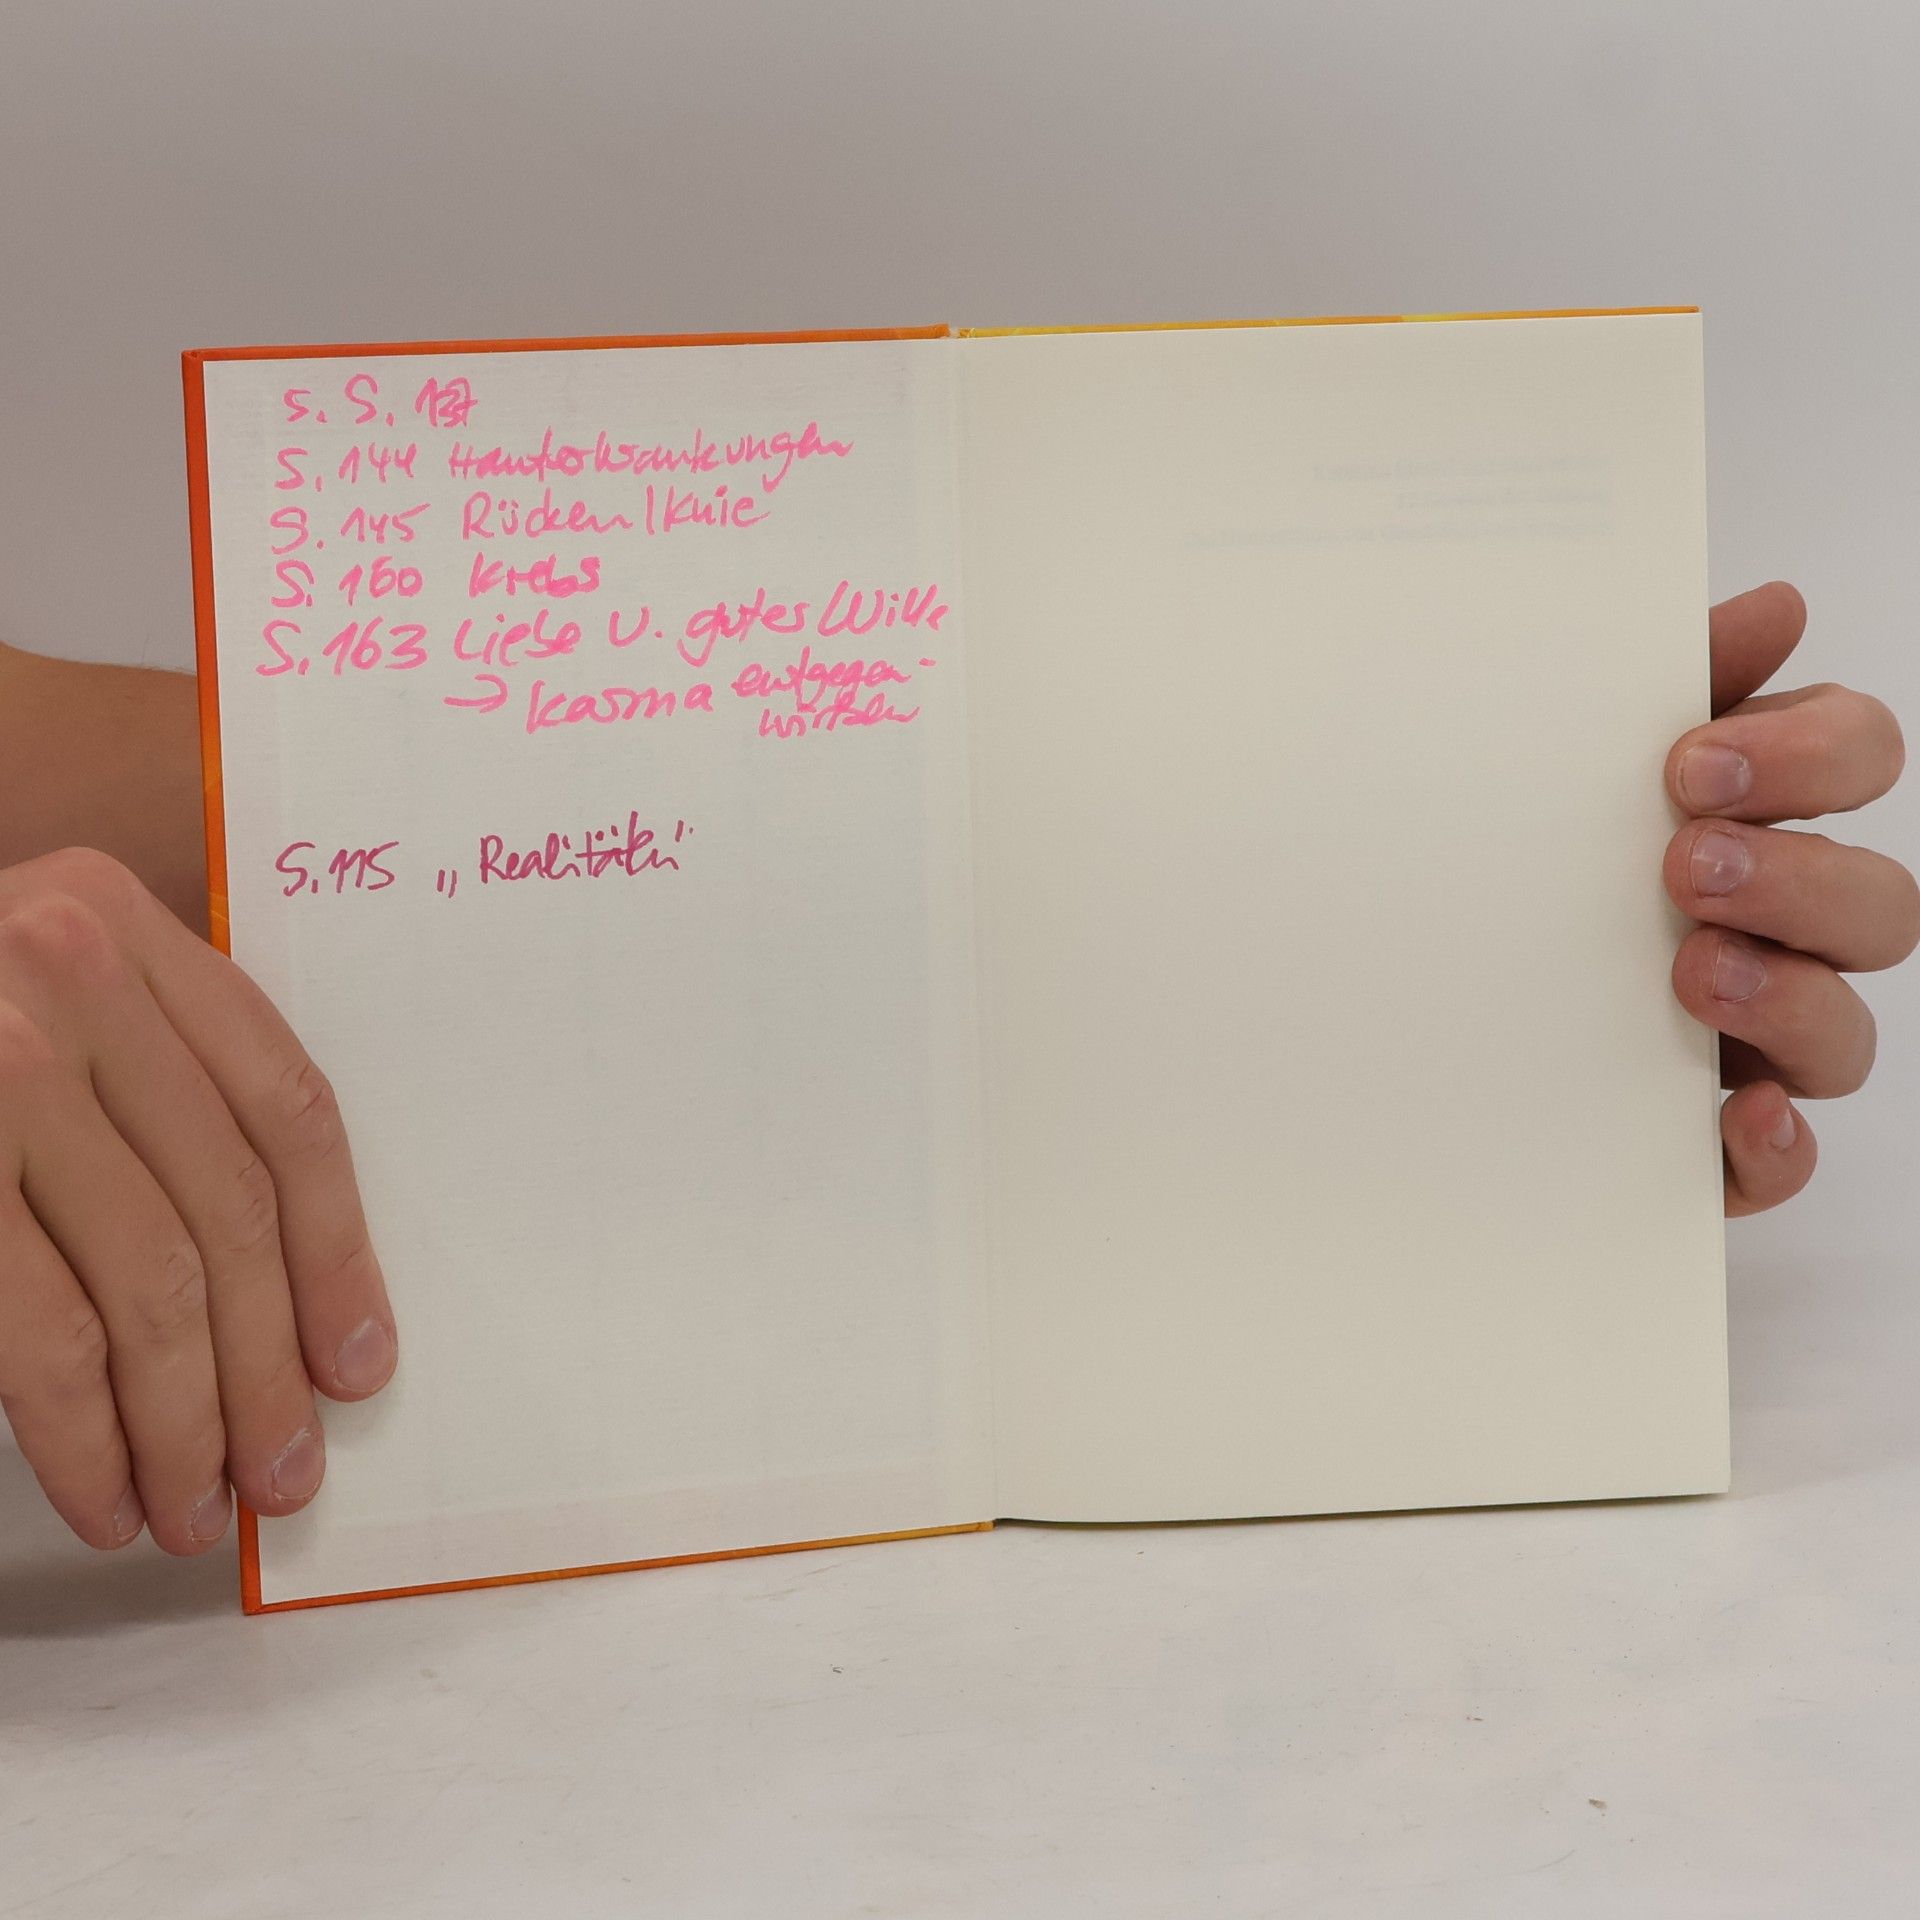 s. S. 137
S. 144 Hauterkrankungen
S. 145 Rücken / Knie
S. 160 Krebs
S. 163 Liebe u. gutes Wille
→ Karma entgegen-
wirken
S. 115 „Realitäten"